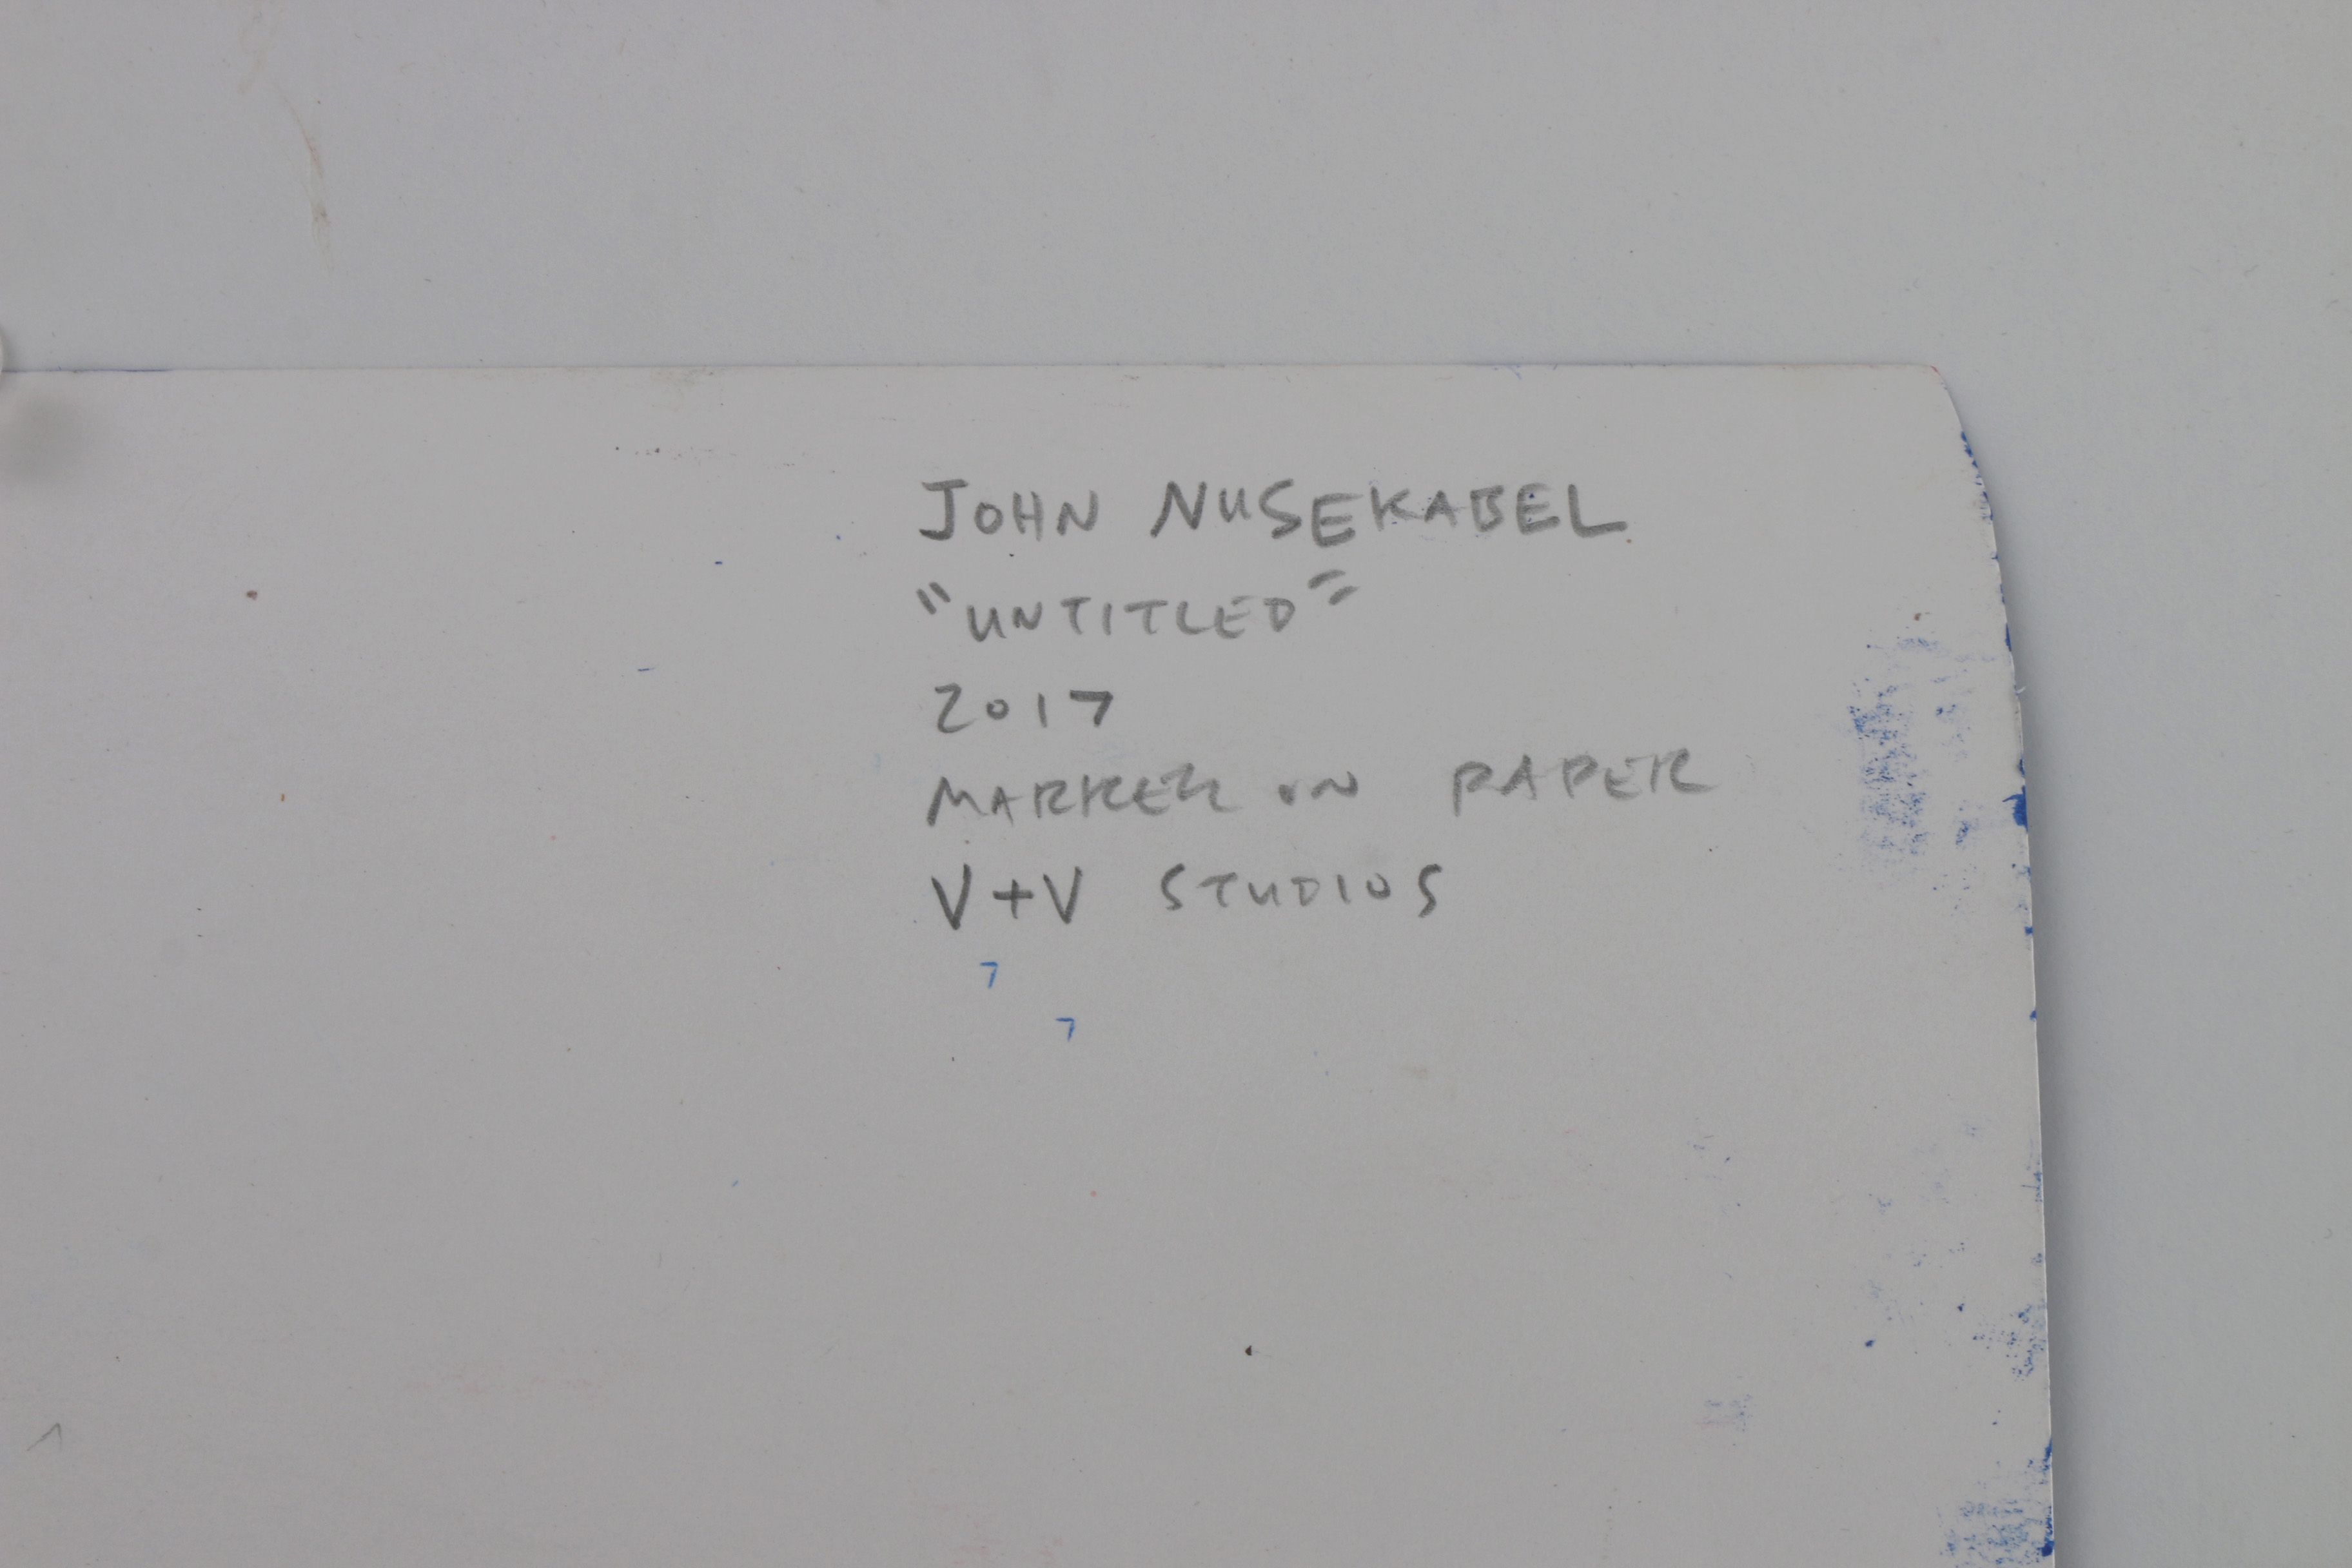 JOHN NUSEKABEL
"UNTITLED"
2017
MARKER ON PAPER
V+V STUDIOS